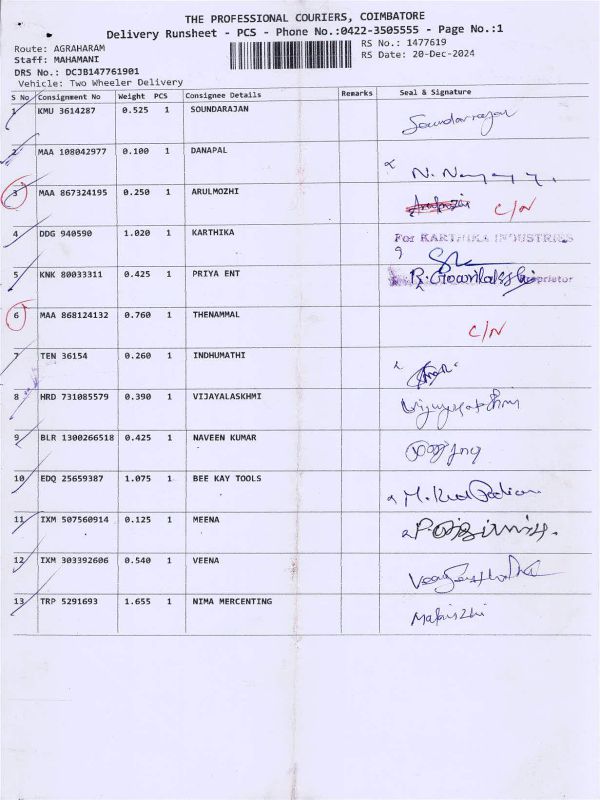 THE PROFESSIONAL COURIERS, COIMBATORE
Delivery Runsheet - PCS - Phone No.:0422-3505555 - Page No.:1
Route: AGRAHARAM
RS No.: 1477619
Staff: MAHAMANI
RS Date: 20-Dec-2024
DRS No.: DCJB147761901
Vehicle: Two Wheeler Delivery
S No Consignment No Weight PCS Consignee Details Remarks Seal & Signature
1 KMU 3614287 0.525 1 SOUNDARAJAN Soundarrajan
2 MAA 108042977 0.100 1 DANAPAL
3 MAA 867324195 0.250 1 ARULMOZHI C/N
4 DDG 940590 1.020 1 KARTHIKA For KARTHIKA INDUSTRIES
5 KNK 80033311 0.425 1 PRIYA ENT Proprietor
6 MAA 868124132 0.760 1 THENAMMAL C/N
7 TEN 36154 0.260 1 INDHUMATHI
8 HRD 731085579 0.390 1 VIJAYALASKHMI
9 BLR 1300266518 0.425 1 NAVEEN KUMAR
10 EDQ 25659387 1.075 1 BEE KAY TOOLS
11 IXM 507560914 0.125 1 MEENA
12 IXM 303392606 0.540 1 VEENA
13 TRP 5291693 1.655 1 NIMA MERCENTING